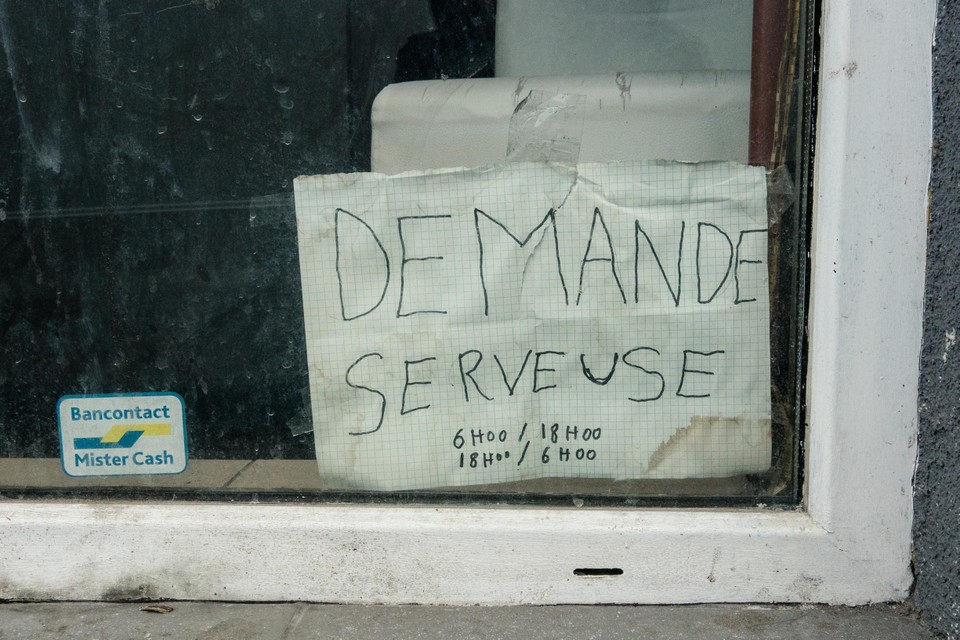 DEMANDE
SERVEUSE
6H00 / 18H00
18H00 / 6H00
Bancontact
Mister Cash